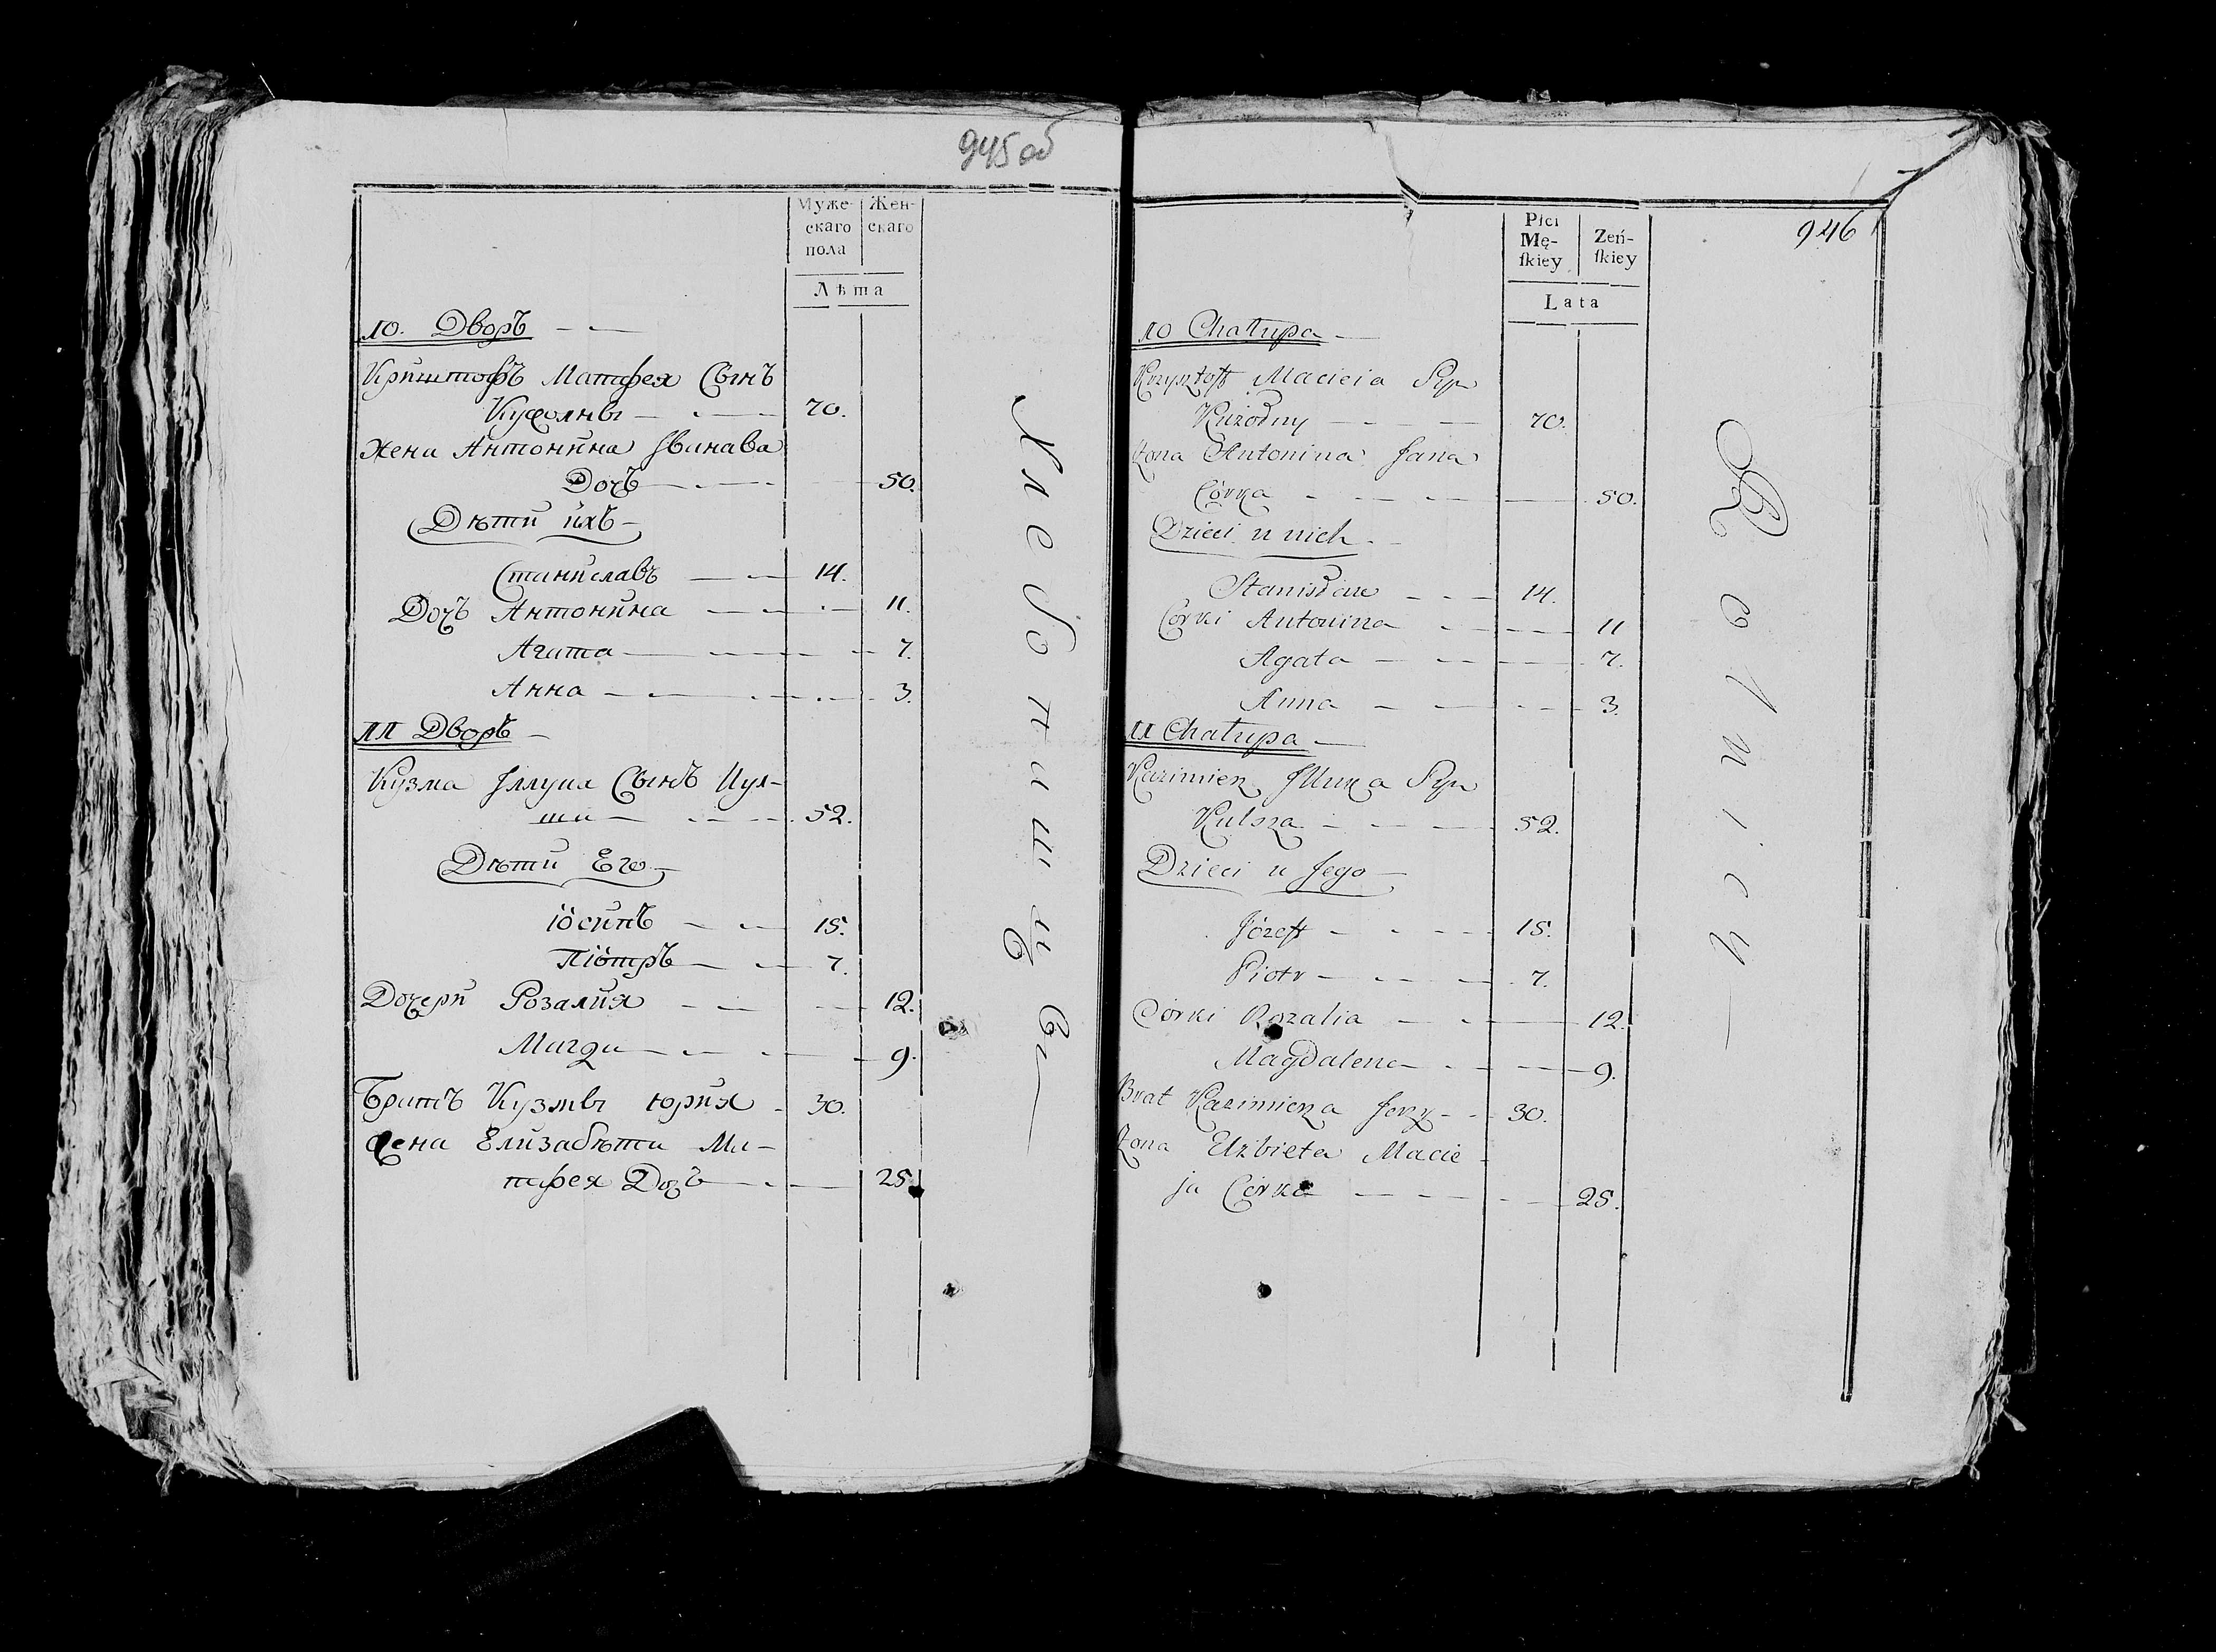 945 об
Муже-
скаго
пола
Жен-
скаго
Лѣта
10. Дворъ
Криштофъ Матфея Сынъ
70.
Жена Антонина Iвинава
Дочъ 50.
Дѣти ихъ
Станиславъ 14.
Дочъ Антонина 11.
Агата 7.
Анна 3.
11 Дворъ
Кузма Сынъ Кул-
ша 52.
Дѣти Его
Iосипъ 15.
Пiотръ 7.
Дочери Розалия 12.
Магда 9.
Братъ Кузмы Юрия 30.
Жена Елизабѣта Ма-
тфея Дочъ 25.
Хлебопашцы
946
Płci
Mę-
ſkiey
Zeń-
ſkiey
Lata
10 Chałupa
Krzysztoff Macieia Syn
70.
Zona Antonina Jana
Córka 50.
Dzieci u nich
Stanisław 14.
Córki Antonina 11
Agata 7.
Anna 3.
11 Chałupa
Kazimierz Syn
Kulsza 52.
Dzieci u Jego
Józeff 15.
Piotr 7.
Córki Rozalia 12.
Magdalena 9.
Brat Kazimierza Jerzy 30.
Zona Elzbieta Macie-
ja Córka 25.
Rolnicy